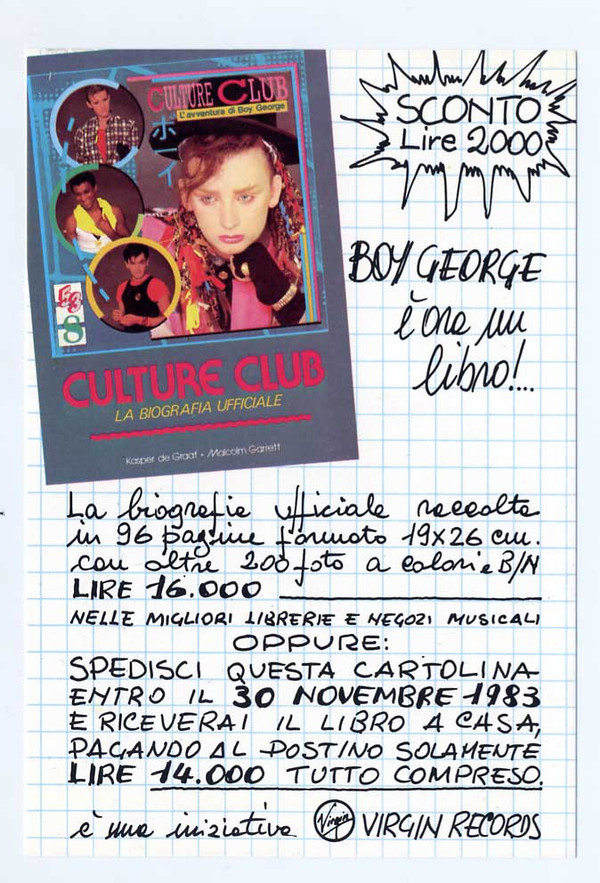 CULTURE CLUB
L'avventura di Boy George
SCONTO
Lire 2000
BOY GEORGE
è ora un
libro!...
CULTURE CLUB
LA BIOGRAFIA UFFICIALE
Kasper de Graaf • Malcolm Garrett
La biografia ufficiale raccolta
in 96 pagine formato 19x26 cm.
con oltre 200 foto a colori e B/N
LIRE 16.000
NELLE MIGLIORI LIBRERIE E NEGOZI MUSICALI
OPPURE:
SPEDISCI QUESTA CARTOLINA
ENTRO IL 30 NOVEMBRE 1983
E RICEVERAI IL LIBRO A CASA,
PAGANDO AL POSTINO SOLAMENTE
LIRE 14.000 TUTTO COMPRESO.
è una iniziativa Virgin VIRGIN RECORDS